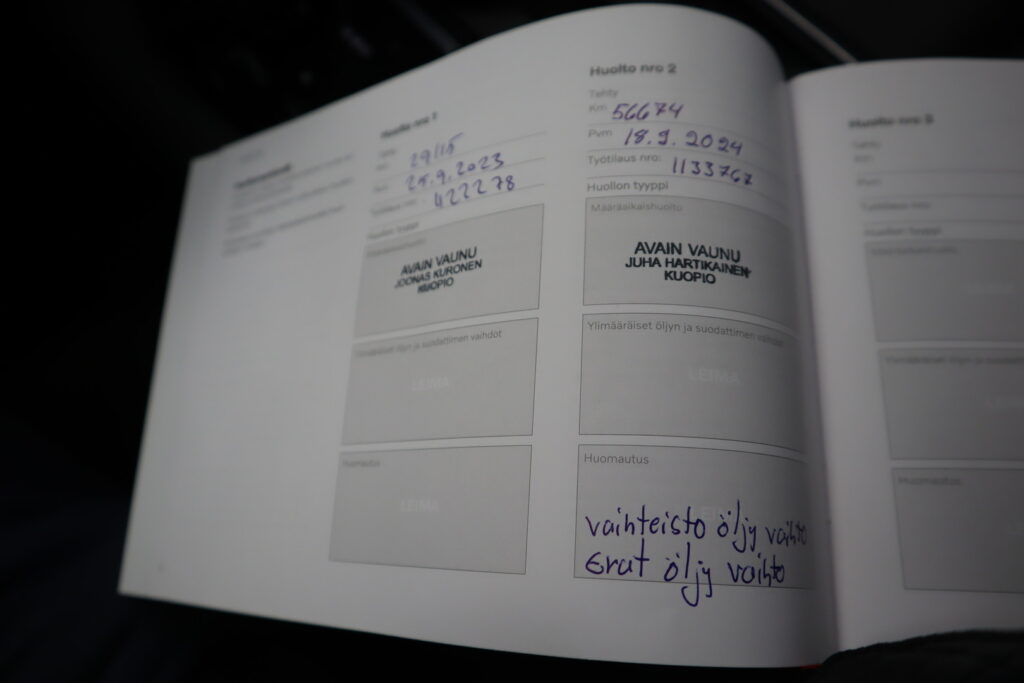 Huolto nro 1
29115
25.9.2023
Työtilaus nro:
422278
Huollon tyyppi
Määräaikaishuolto
AVAIN VAUNU
JOONAS KURONEN
KUOPIO
Ylimääräiset öljyn ja suodattimen vaihdot
LEIMA
Huomautus
LEIMA
Huolto nro 2
Tehty
Km 56674
Pvm 18.9.2024
Työtilaus nro: 1133767
Huollon tyyppi
Määräaikaishuolto
AVAIN VAUNU
JUHA HARTIKAINEN
KUOPIO
Ylimääräiset öljyn ja suodattimen vaihdot
LEIMA
Huomautus
vaihteisto öljy vaihto
Erat öljy vaihto
Huolto nro 3
Tehty
Km
Pvm
Työtilaus nro:
Huollon tyyppi
Määräaikaishuolto
Ylimääräiset öljyn ja suodatt
Huomautus